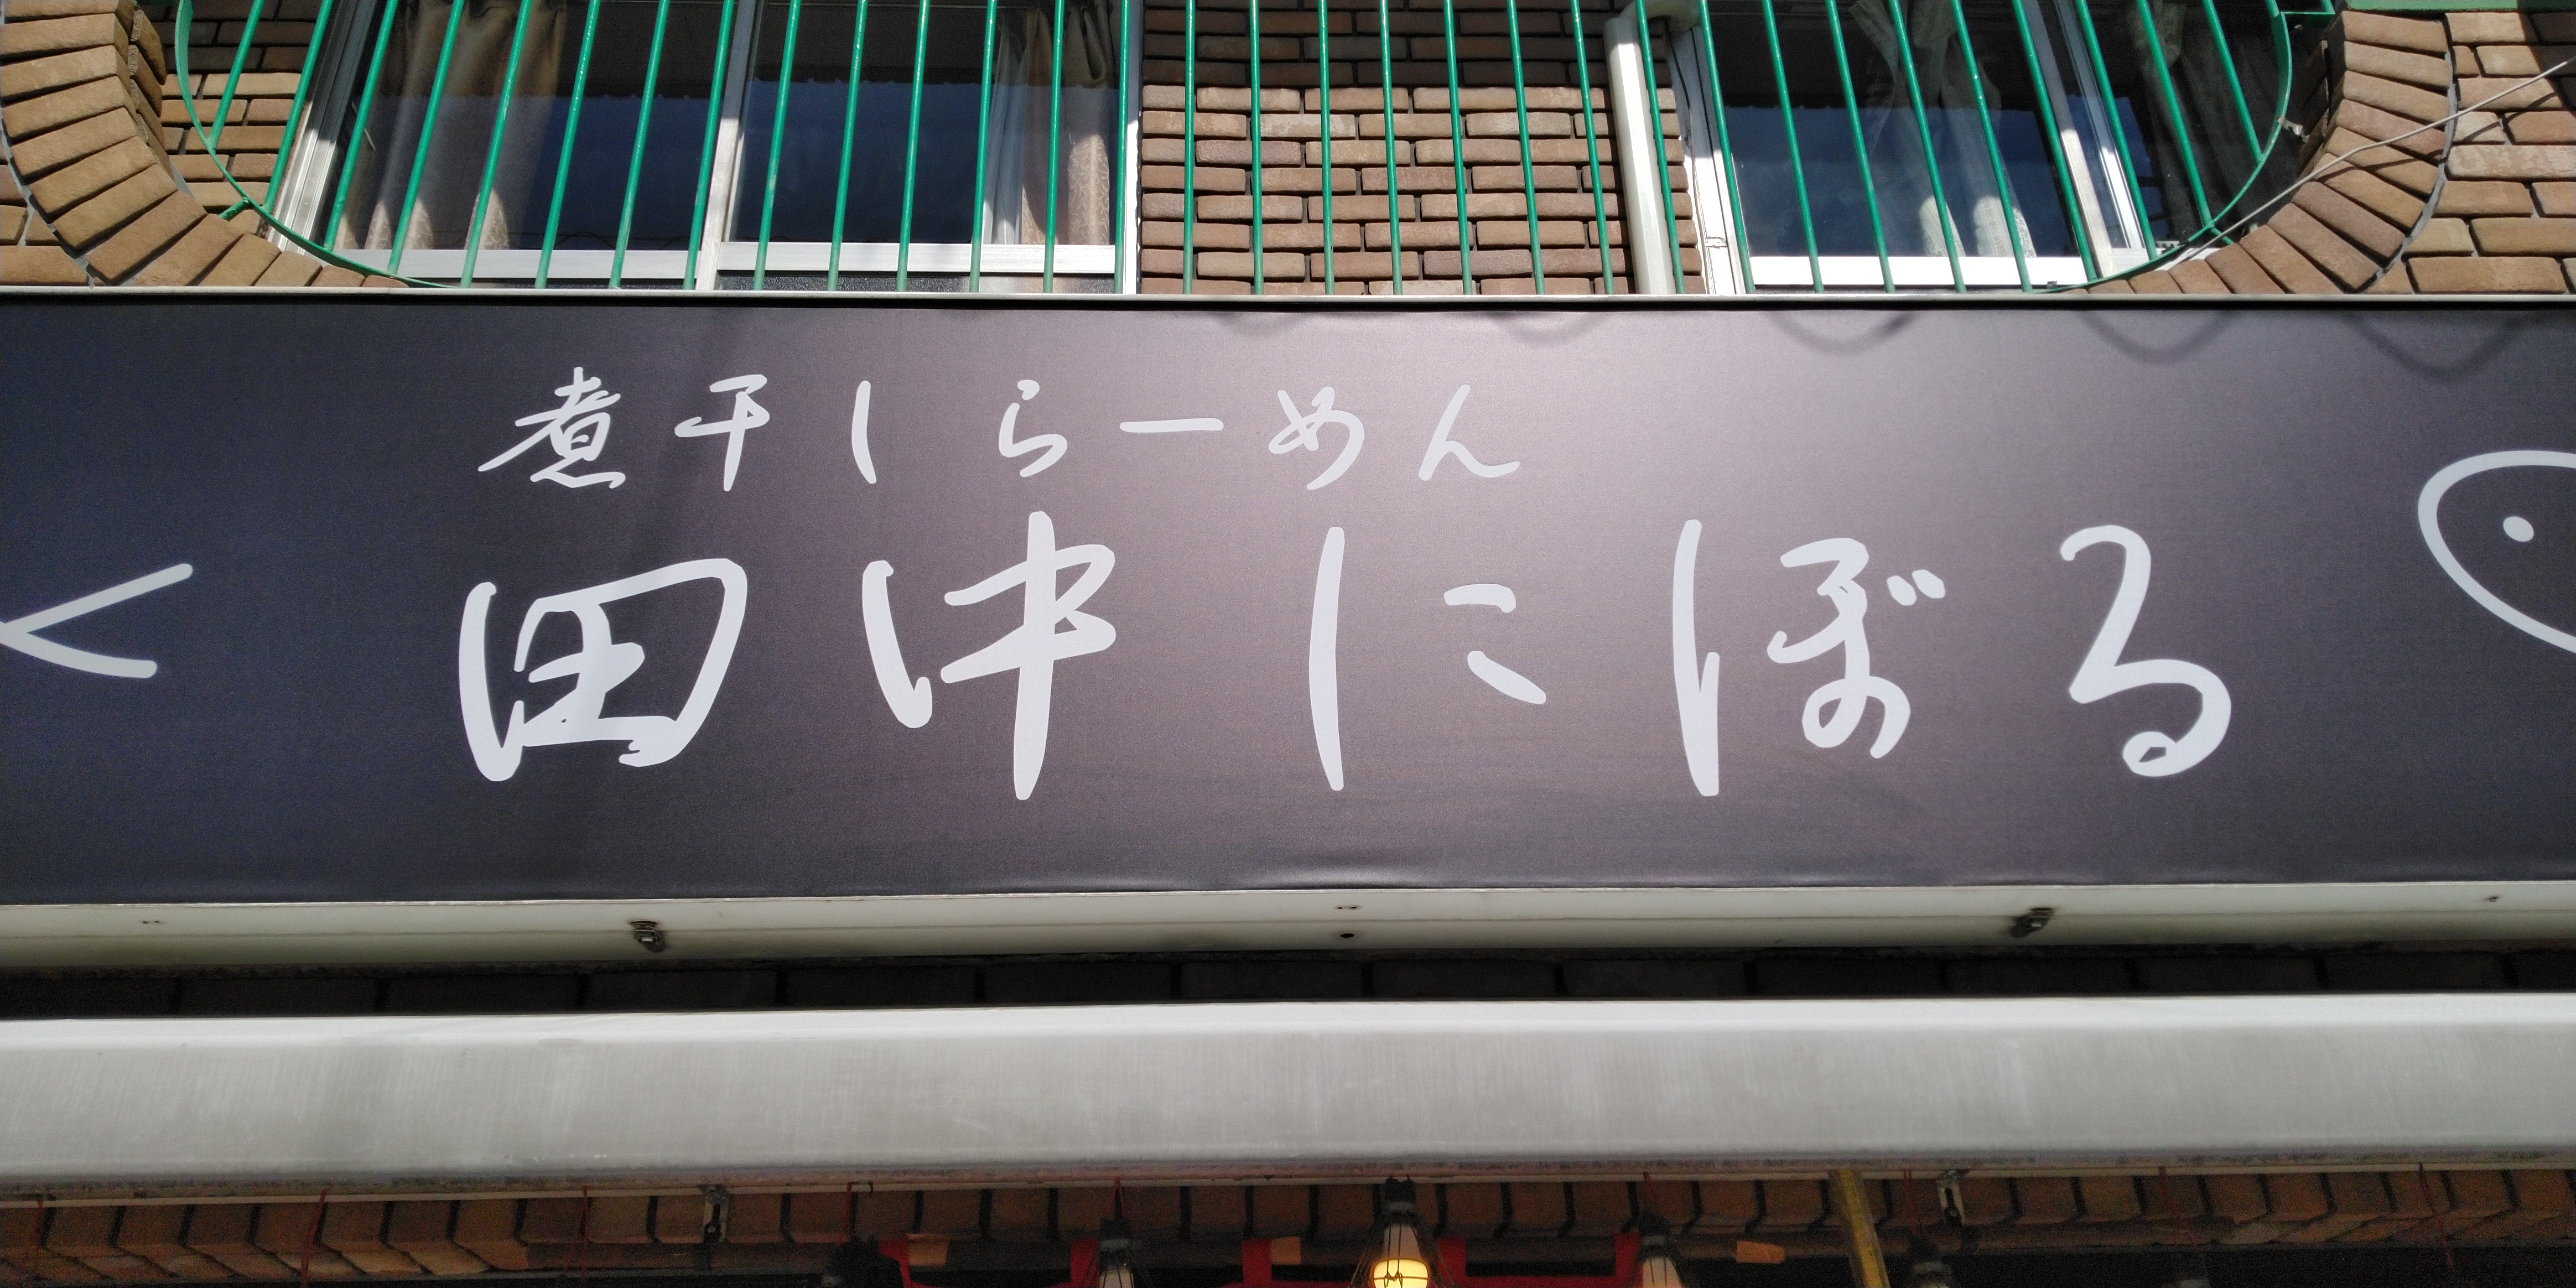 煮干しらーめん
田中にぼる